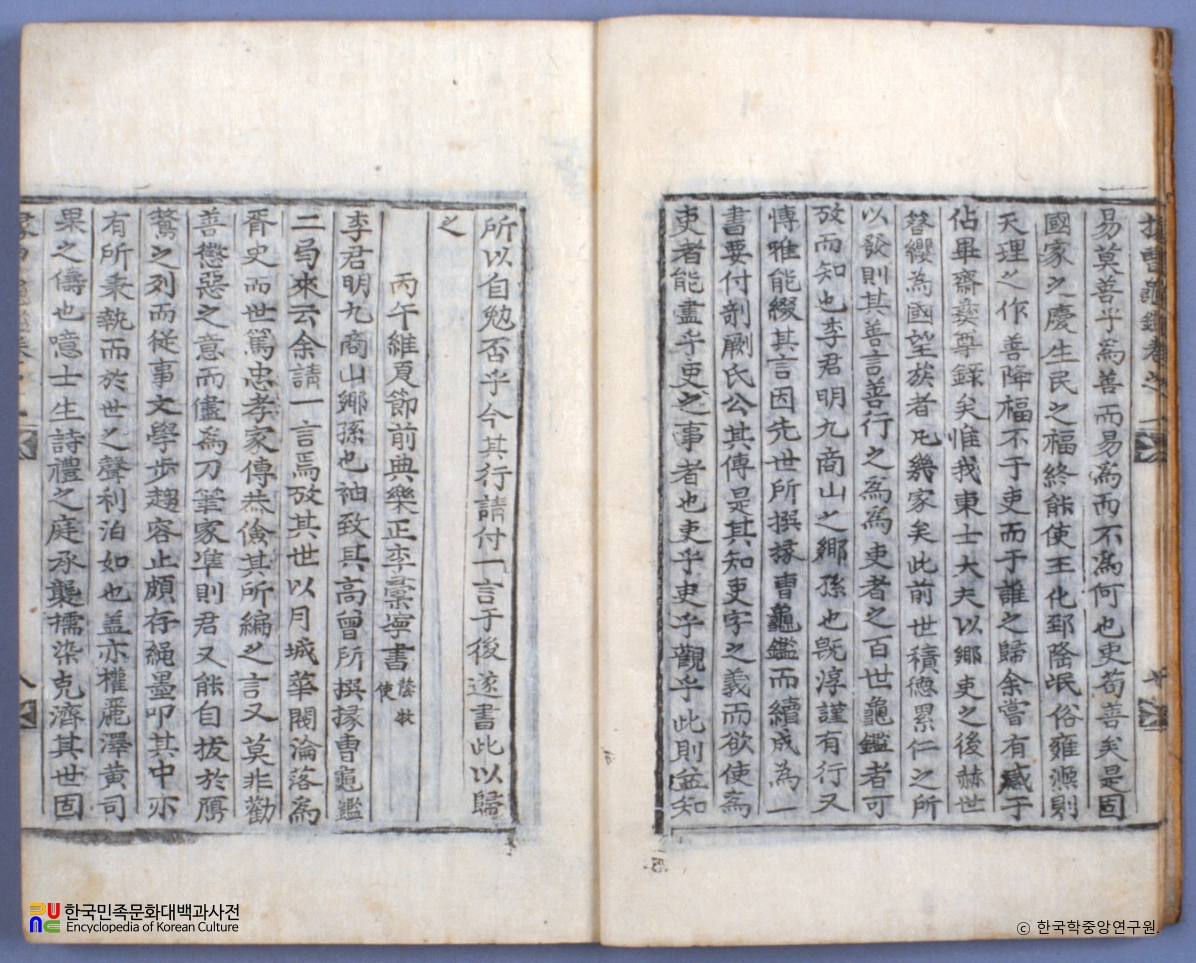 易莫善乎爲善而易爲而不爲何也吏苟善矣是固
國家之慶生民之福終能使王化郅隆氓俗雍凞則
天理之作善降福不于吏而于誰之歸余嘗有感于
佔畢齋彜尊錄矣惟我東士大夫以鄉吏之後赫世
簪纓為國望族者凡幾家矣此前世積德累仁之所
以發則其善言善行之爲爲吏者之百世龜鑑者可
攷而知也李君明九商山之鄉孫也旣淳謹有行又
博雅能綴其言因先世所撰掾曹龜鑑而續成為一
書要付剞劂氏公其傳是其知吏字之義而欲使爲
吏者能盡乎吏之事者也吏乎吏乎觀乎此則益知
所以自勉否乎今其行請付一言于後遂書此以歸
之
丙午維夏節前典樂正李彙寧書
蔭牧使
李君明九商山鄉孫也袖致其高曾所撰掾曹龜鑑
二局來云余請一言焉攷其世以月城華閥淪落爲
胥史而世篤忠孝家傳恭儉其所編之言又莫非勸
善懲惡之意而儘爲刀筆家準則君又能自拔於鴈
鶩之列而從事文學步趨容止頗存繩墨叩其中亦
有所秉執而於世之聲利泊如也盖亦權麗澤黃司
果之儔也噫士生詩禮之庭承襲擩染克濟其世固
한국민족문화대백과사전
Encyclopedia of Korean Culture
ⓒ 한국학중앙연구원.